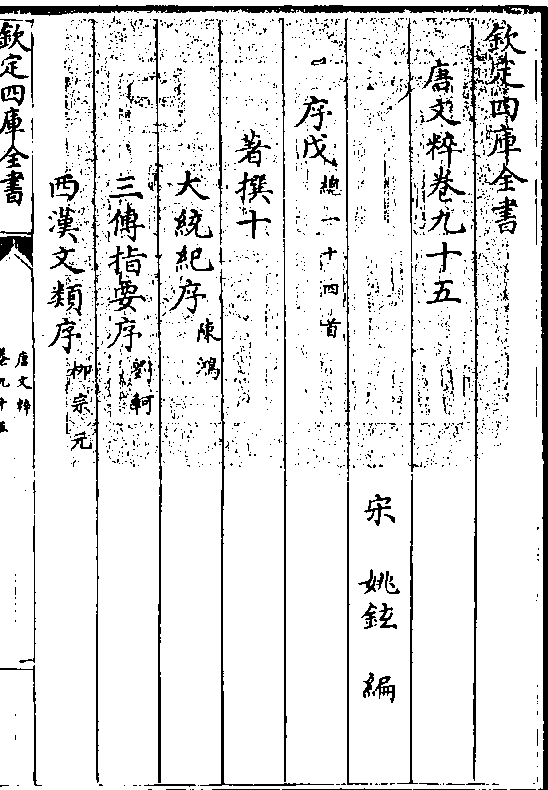 欽定四庫全書
唐文粹卷九十五
宋 姚鉉 編
序戊總一十四首
著撰十
大統紀序陳鴻
三傳指要序劉軻
西漢文類序柳宗元
欽定四庫全書
唐文粹
卷九十五